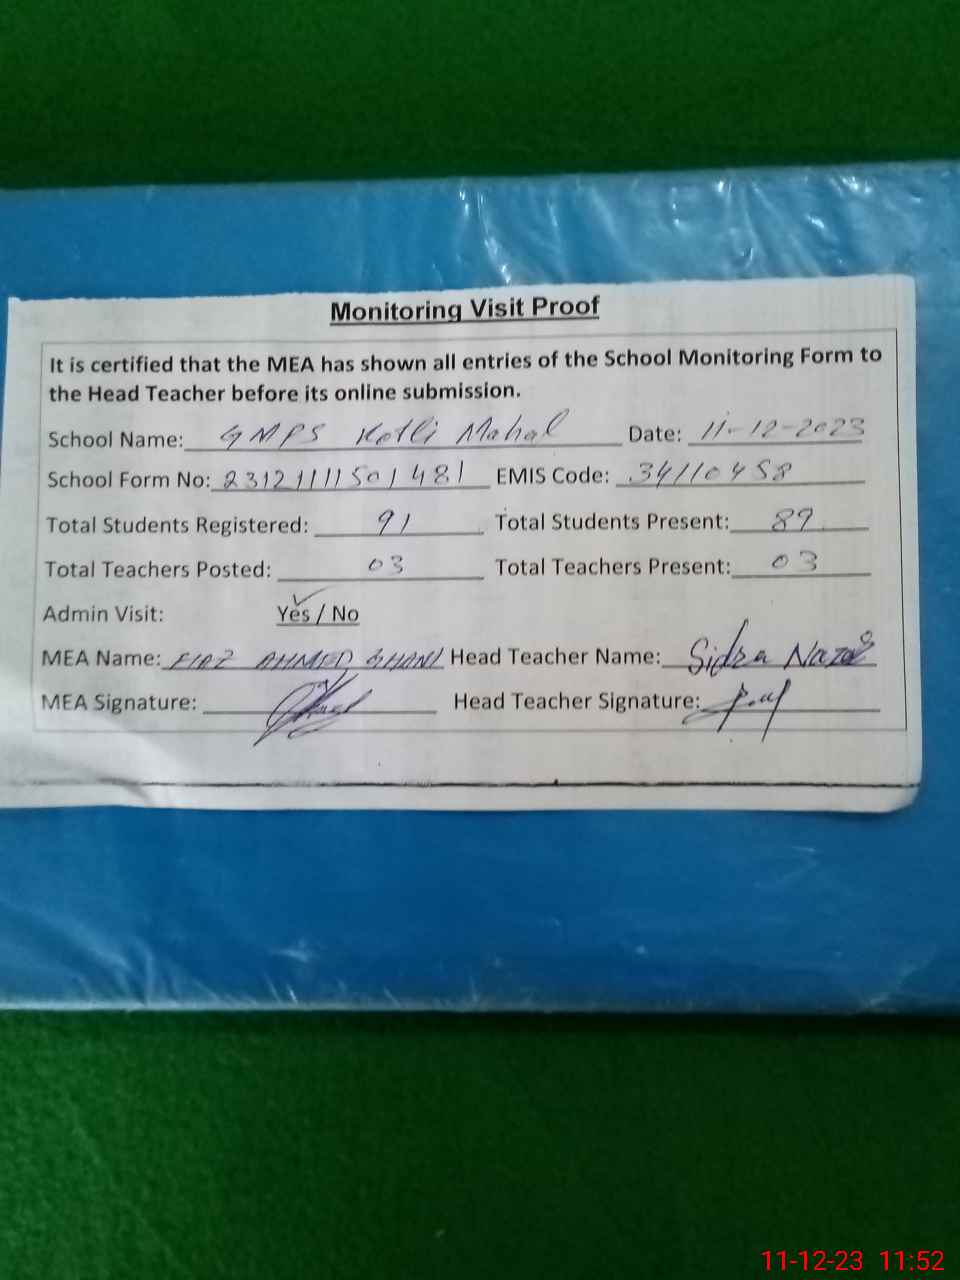 Monitoring Visit Proof
It is certified that the MEA has shown all entries of the School Monitoring Form to
the Head Teacher before its online submission.
School Name: GMPS Kotli Mahal Date: 11-12-2023
School Form No: 23121111501481 EMIS Code: 34110458
Total Students Registered: 91 Total Students Present: 89
Total Teachers Posted: 03 Total Teachers Present: 03
Admin Visit: Yes / No
MEA Name: FIAZ AHMED GHANI Head Teacher Name: Sidra
MEA Signature: Head Teacher Signature:
11-12-23 11:52